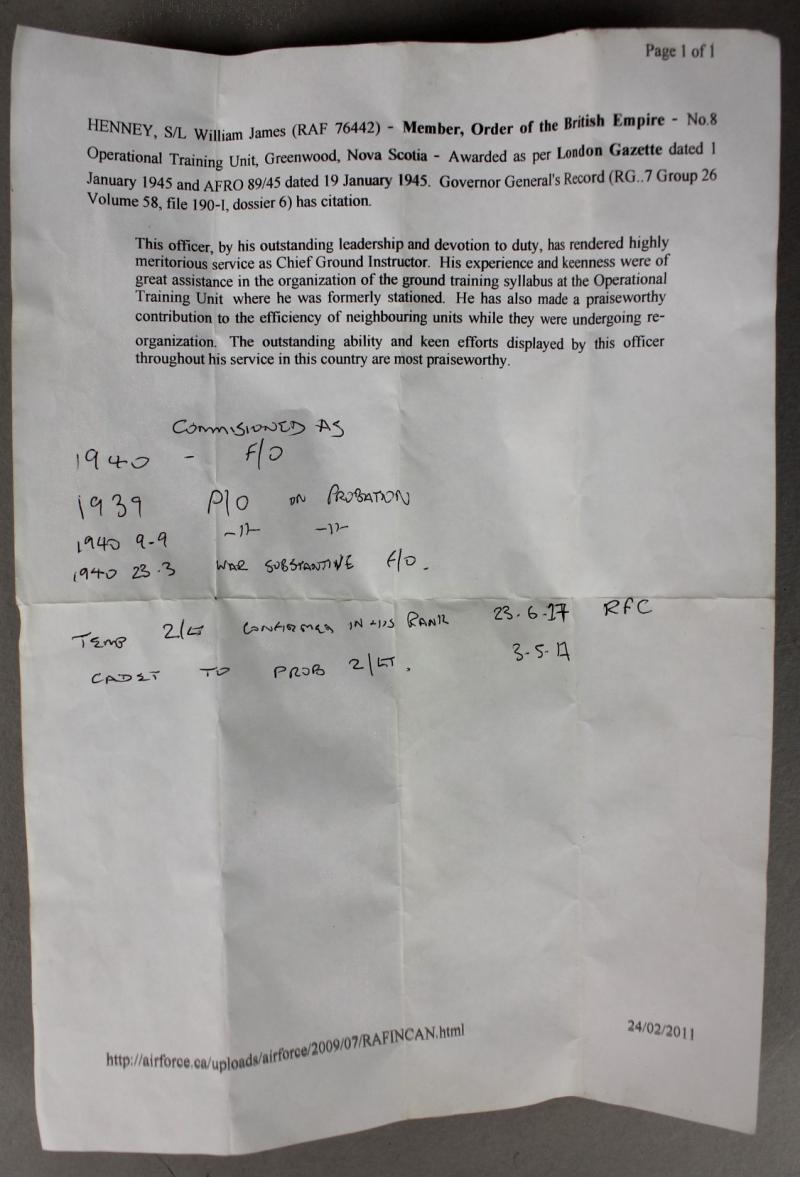 Page 1 of 1
HENNEY, S/L William James (RAF 76442) - Member, Order of the British Empire - No.8
Operational Training Unit, Greenwood, Nova Scotia - Awarded as per London Gazette dated 1
January 1945 and AFRO 89/45 dated 19 January 1945. Governor General's Record (RG..7 Group 26
Volume 58, file 190-I, dossier 6) has citation.
This officer, by his outstanding leadership and devotion to duty, has rendered highly
meritorious service as Chief Ground Instructor. His experience and keenness were of
great assistance in the organization of the ground training syllabus at the Operational
Training Unit where he was formerly stationed. He has also made a praiseworthy
contribution to the efficiency of neighbouring units while they were undergoing re-
organization. The outstanding ability and keen efforts displayed by this officer
throughout his service in this country are most praiseworthy.
COMMISIONED AS
1940 - F/O
1939 P/O ON PROBATION
1940 9-9 -11- -11-
1940 23.3 WAR SUBSTANTIVE F/O.
TEMP 2/LT CONFIRMED IN HIS RANK 23-6-17 RFC
CADET TO PROB 2/LT. 3-5-17
http://airforce.ca/uploads/airforce/2009/07/RAFINCAN.html
24/02/2011